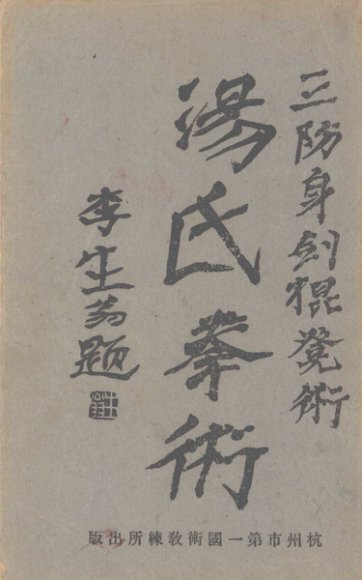 三防身劍棍凳術
湯氏拳術
李生翁題
杭州市第一國術教練所出版